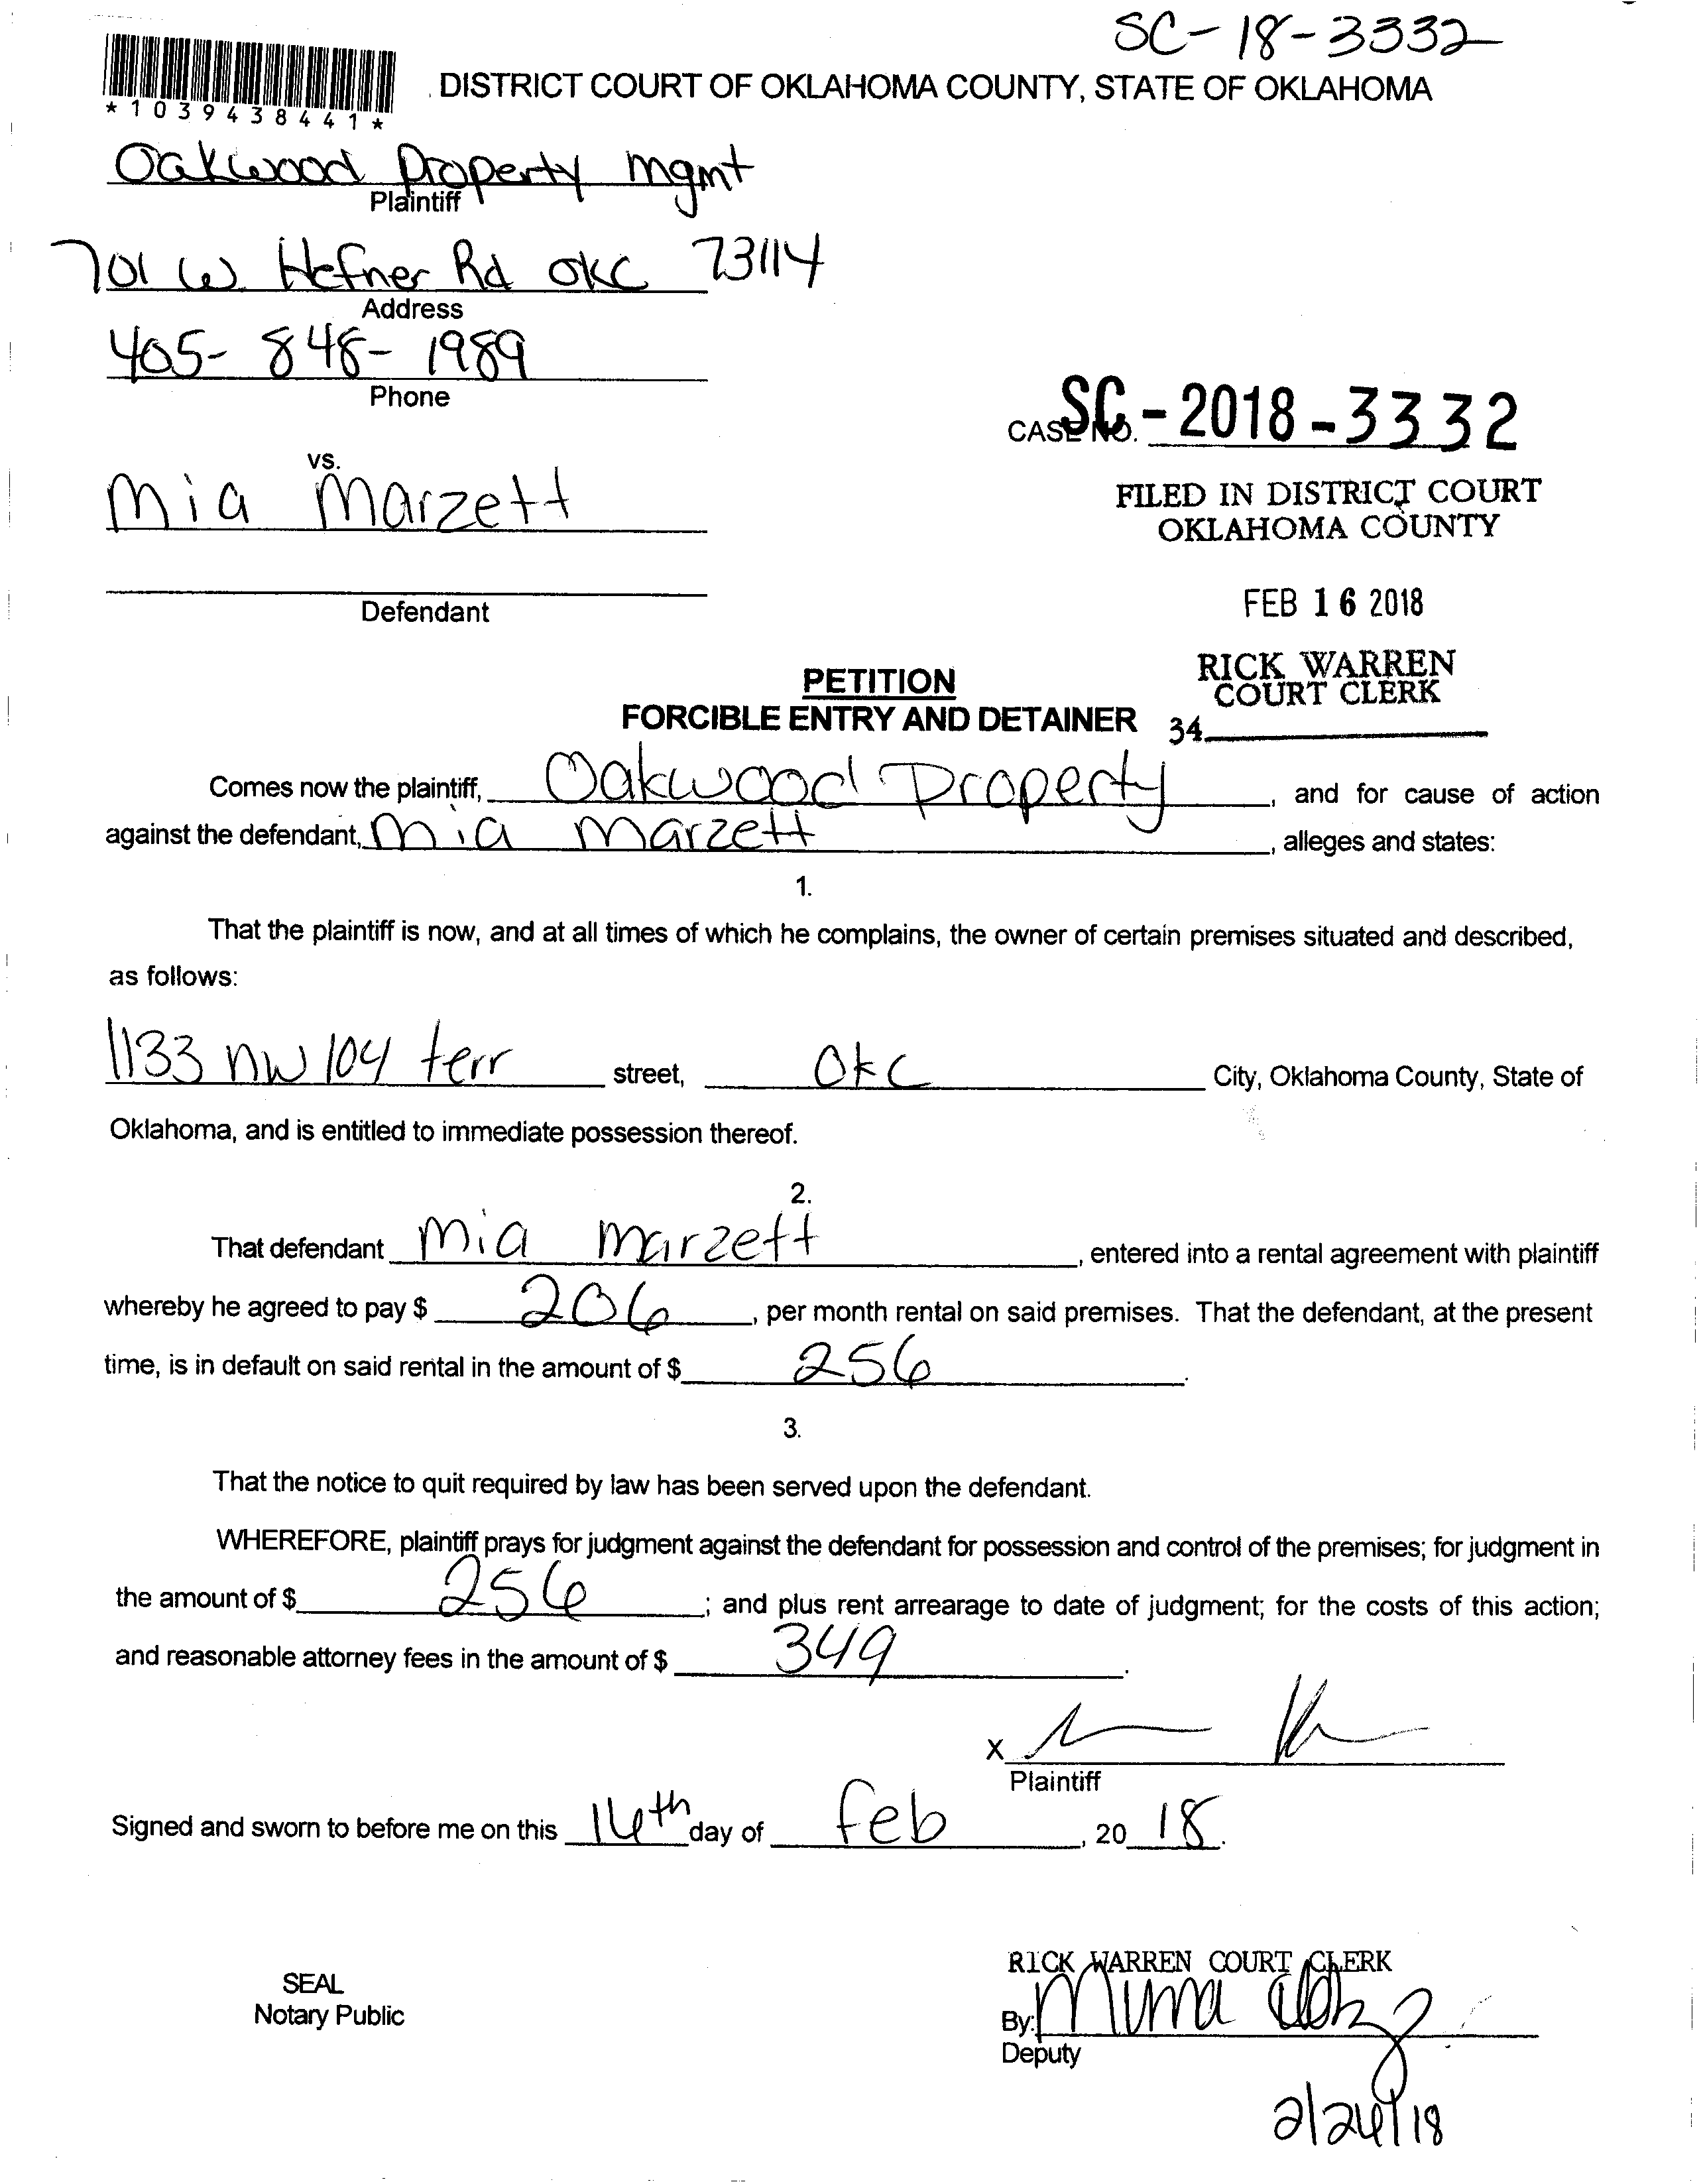 SC-18-3332
*1039438441*
DISTRICT COURT OF OKLAHOMA COUNTY, STATE OF OKLAHOMA
Oakwood Property mgmt
Plaintiff
701 W Hefner Rd OKC 73114
Address
405-848-1989
Phone
CASE NO. SC-2018-3332
vs.
Mia Marzett
FILED IN DISTRICT COURT
OKLAHOMA COUNTY
Defendant
FEB 16 2018
RICK WARREN
COURT CLERK
34
PETITION
FORCIBLE ENTRY AND DETAINER
Comes now the plaintiff, Oakwood Property, and for cause of action
against the defendant, Mia Marzett, alleges and states:
1.
That the plaintiff is now, and at all times of which he complains, the owner of certain premises situated and described,
as follows:
1133 NW 104 terr street, OKC City, Oklahoma County, State of
Oklahoma, and is entitled to immediate possession thereof.
2.
That defendant Mia Marzett, entered into a rental agreement with plaintiff
whereby he agreed to pay $ 206, per month rental on said premises. That the defendant, at the present
time, is in default on said rental in the amount of $ 256.
3.
That the notice to quit required by law has been served upon the defendant.
WHEREFORE, plaintiff prays for judgment against the defendant for possession and control of the premises; for judgment in
the amount of $ 256; and plus rent arrearage to date of judgment; for the costs of this action;
and reasonable attorney fees in the amount of $ 349.
X
Plaintiff
Signed and sworn to before me on this 16th day of Feb, 20 18.
SEAL
Notary Public
RICK WARREN COURT CLERK
By:
Deputy